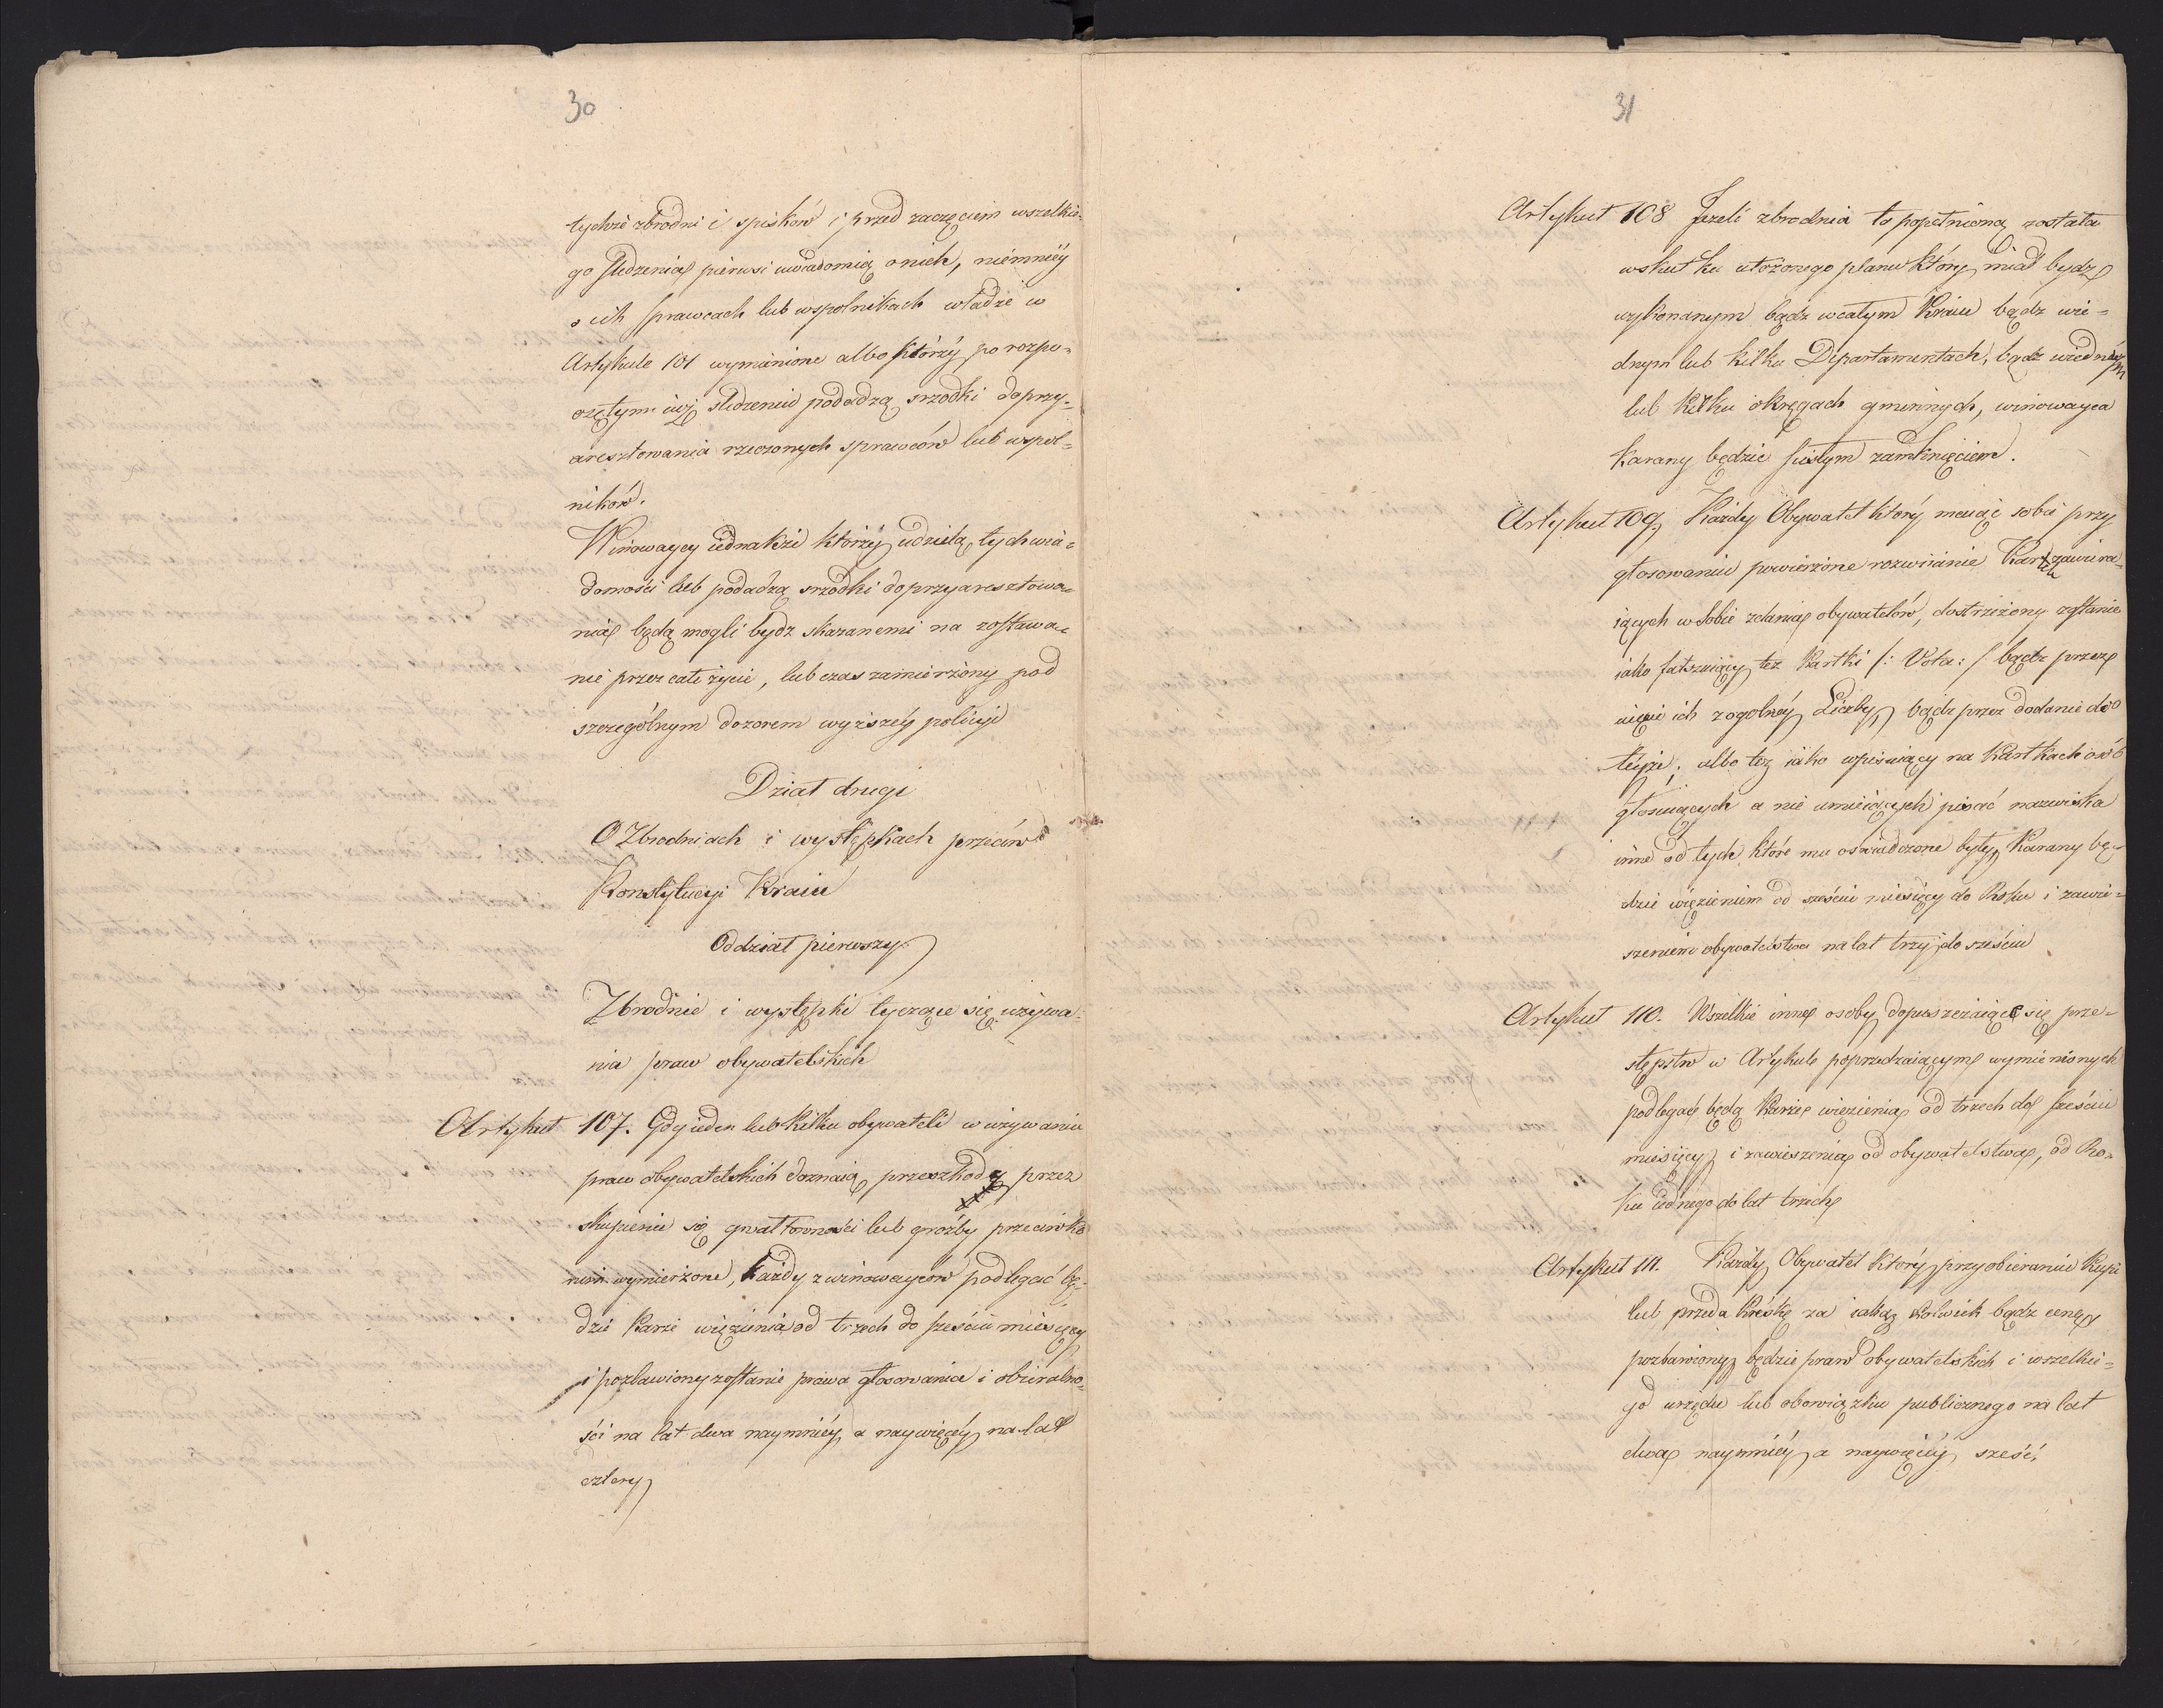 30
tychże zbrodni i spisków i przed zaczęciem wszelkie-
go śledzenia pierwsi uwiadomią o nich, niemniéy
o ich sprawcach lub wspolnikach władze w
Artykule 101 wymienione albo którzy po rozpo-
czętym iuż śledzeniu podadzą srzodki do przy-
aresztowania rzeczonych sprawców lub wspol-
ników.
Winowaycy iednakże którzy udzielą tych wia-
domości lub podadzą srzodki do przyaresztowa-
nia będą mogli bydz skazanemi na zostawa-
nie przez całe życie, lub czas zamierzony pod
szczególnym dozorem wyższéy policyi
Dział drugi
O Zbrodniach i występkach przeciw
Konstytucyi Kraiu
Oddział pierwszy
Zbrodnie i występki tyczące się używa-
nia praw obywatelskich
Artykuł 107. Gdy ieden lub kilku obywateli w używaniu
praw obywatelskich doznaią przeszkody przez
skupienie się gwałtowności lub groźby przeciwko
nim wymierzone, każdy z winowayców podlegać bę-
dzie karze więzienia od trzech do sześciu miesięcy
i pozbawiony zostanie prawa głosowania i obieralno-
ści na lat dwa naymniéy a naywięcéy na lat
cztery
31
Artykuł 108 Jeżeli zbrodnia ta popełnioną została
wskutku ułożonego planu który miał bydz
wykonanym bądz w całym Kraiu bądz w ie-
dnym lub kilku Departamentach, bądz w iednym
lub kilku okręgach gminnych, winowayca
karany będzie ścisłym zamknięciem.
Artykuł 109. Każdy Obywatel który maiąc sobie przy
głosowaniu powierzone rozwiianie Kartek zawiera-
iących w sobie zdania obywatelów, dostrzeżony zostanie
iako fałszuiący też Kartki /: Vota: / bądz przez
uięcie ich z ogolnéy Liczby, bądz przez dodanie do
téyże; albo też iako wpisuiący na Kartkach osób
głosuiących a nie umieiących pisać nazwiska
inne od tych które mu oswiadczone były, karany bę-
dzie więzieniem od sześciu miesięcy do Roku i zawie-
szeniem obywatelstwa na lat trzy do sześciu
Artykuł 110. Wszelkie inne osoby dopuszczaiące się prze-
stępstw w Artykule poprzedzaiącym wymienionych
podlegać będą Karze więzienia od trzech do sześciu
miesięcy i zawieszenia od obywatelstwa, od Ro-
ku iednego do lat trzech
Artykuł 111. Każdy Obywatel który przy obieraniu kupi
lub przeda kreskę za iakąż kolwiek bądz cenę
pozbawionym będzie praw obywatelskich i wszelkie-
go urzędu lub obowiązku publicznego na lat
dwa naymniéy a naywięcéy sześć.